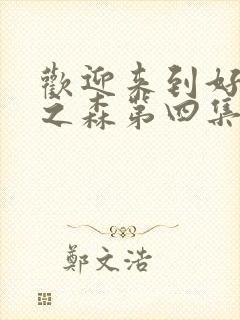 歡迎来到好
之森第四集
鄭文浩